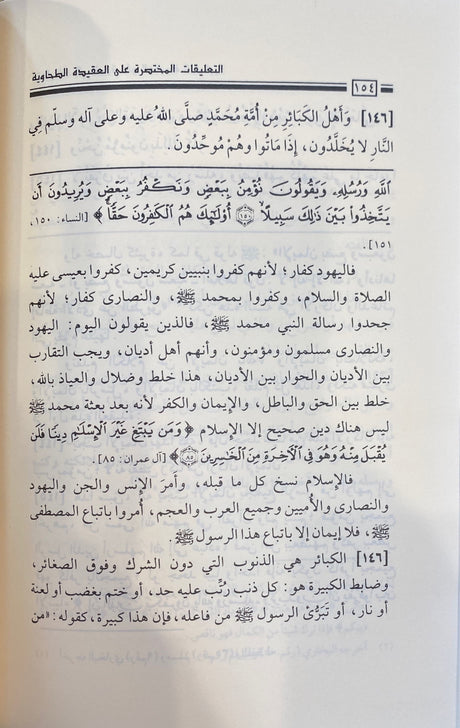 التعليقات المختصرة على العقيدة الطحاوية
١٥٤
[١٤٦] وَأَهْلُ الكَبَائِرِ مِنْ أُمَّةِ مُحَمَّدٍ صلَّى اللهُ عليه وعلى آله وسلَّم فِي
النَّارِ لا يُخَلَّدُون، إِذَا مَاتُوا وهُمْ مُوحِّدُونَ.
اللَّهِ وَرُسُلِهِ وَيَقُولُونَ نُؤْمِنُ بِبَعْضٍ وَنَكْفُرُ بِبَعْضٍ وَيُرِيدُونَ أَن
يَتَّخِذُوا بَيْنَ ذَلِكَ سَبِيلًا ۝١٥٠ أُوْلَٰئِكَ هُمُ الْكَافِرُونَ حَقًّا﴾ [النساء: ١٥٠،
١٥١].
فاليهود كفار؛ لأنهم كفروا بنبيين كريمين، كفروا بعيسى عليه
الصلاة والسلام، وكفروا بمحمد ﷺ، والنصارى كفار؛ لأنهم
جحدوا رسالة النبي محمد ﷺ، فالذين يقولون اليوم: اليهود
والنصارى مسلمون ومؤمنون، وأنهم أهل أديان، ويجب التقارب
بين الأديان والحوار بين الأديان، هذا خلط وضلال والعياذ بالله،
خلط بين الحق والباطل، والإيمان والكفر لأنه بعد بعثة محمد ﷺ
ليس هناك دين صحيح إلا الإسلام ﴿وَمَن يَبْتَغِ غَيْرَ الْإِسْلَامِ دِينًا فَلَن
يُقْبَلَ مِنْهُ وَهُوَ فِي الْآخِرَةِ مِنَ الْخَاسِرِينَ ۝٨٥﴾ [آل عمران: ٨٥].
فالإسلام نسخ كل ما قبله، وأَمرَ الإنس والجن واليهود
والنصارى والأُميين وجميع العرب والعجم، أُمروا باتباع المصطفى
ﷺ، فلا إيمان إلا باتباع هذا الرسول ﷺ.
[١٤٦] الكبائر هي الذنوب التي دون الشرك وفوق الصغائر،
وضابط الكبيرة هو: كل ذنب رتِّب عليه حد، أو ختم بغضب أو لعنة
أو نار، أو تَبَرُّئ الرسول ﷺ من فاعله، فإن هذا كبيرة، كقوله: «من